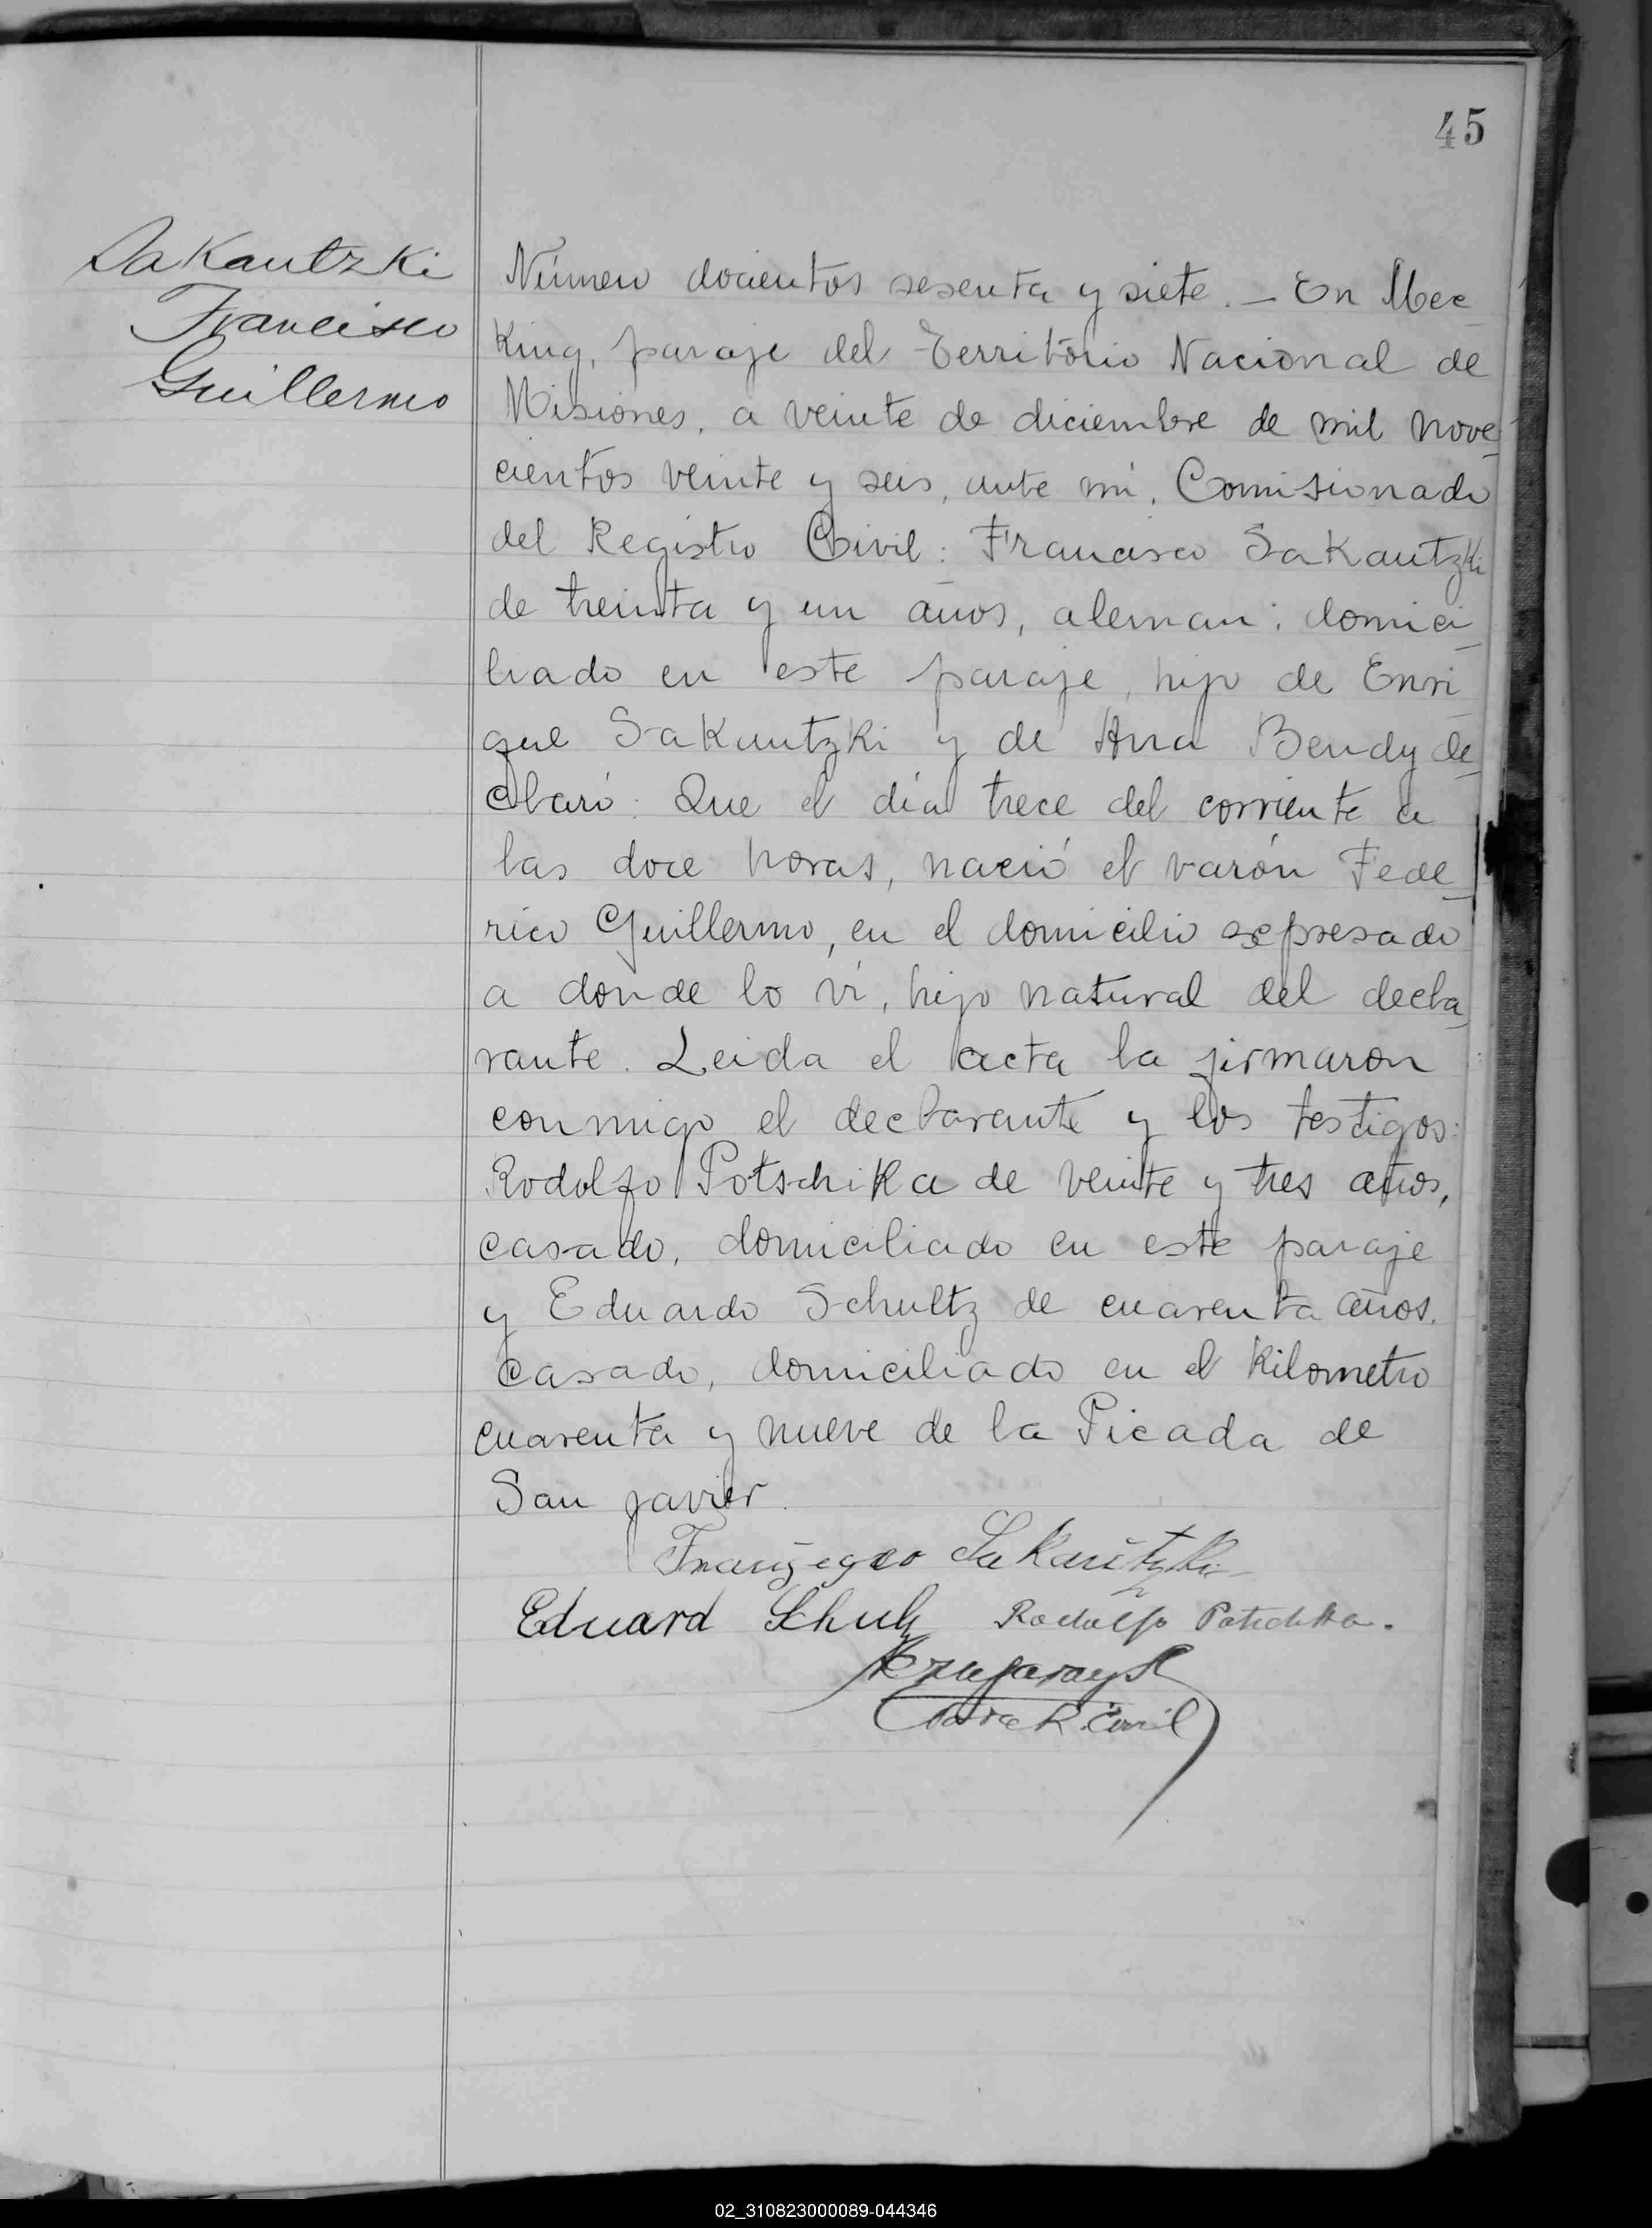 45
Sakautzki
Francisco
Guillermo
Número docientos sesenta y siete. – En Mec
King, paraje del Territorio Nacional de
Misiones, a veinte de diciembre de mil nove
cientos veinte y seis, ante mi, Comisionado
del Registro Civil: Francisco Sakautzki
de treinta y un años, aleman: domici
liado en este paraje, hijo de Enri
que Sakautzki y de Ana Bendy de
claró: Que el día trece del corriente a
las doce horas, nació el varón Fede
rico Guillermo, en el domicilio expresado
a donde lo ví, hijo natural del decla
rante. Leida el acta la firmaron
conmigo el declarante y los testigos:
Rodolfo Potschika de veinte y tres años,
casado, domiciliado en este paraje
y Eduardo Schultz de cuarenta años.
casado, domiciliado en el Kilometro
cuarenta y nueve de la Picada de
San Javier.
Sakautzki
Eduard Schulz Rodolfo
R. Civil
02_310823000089-044346